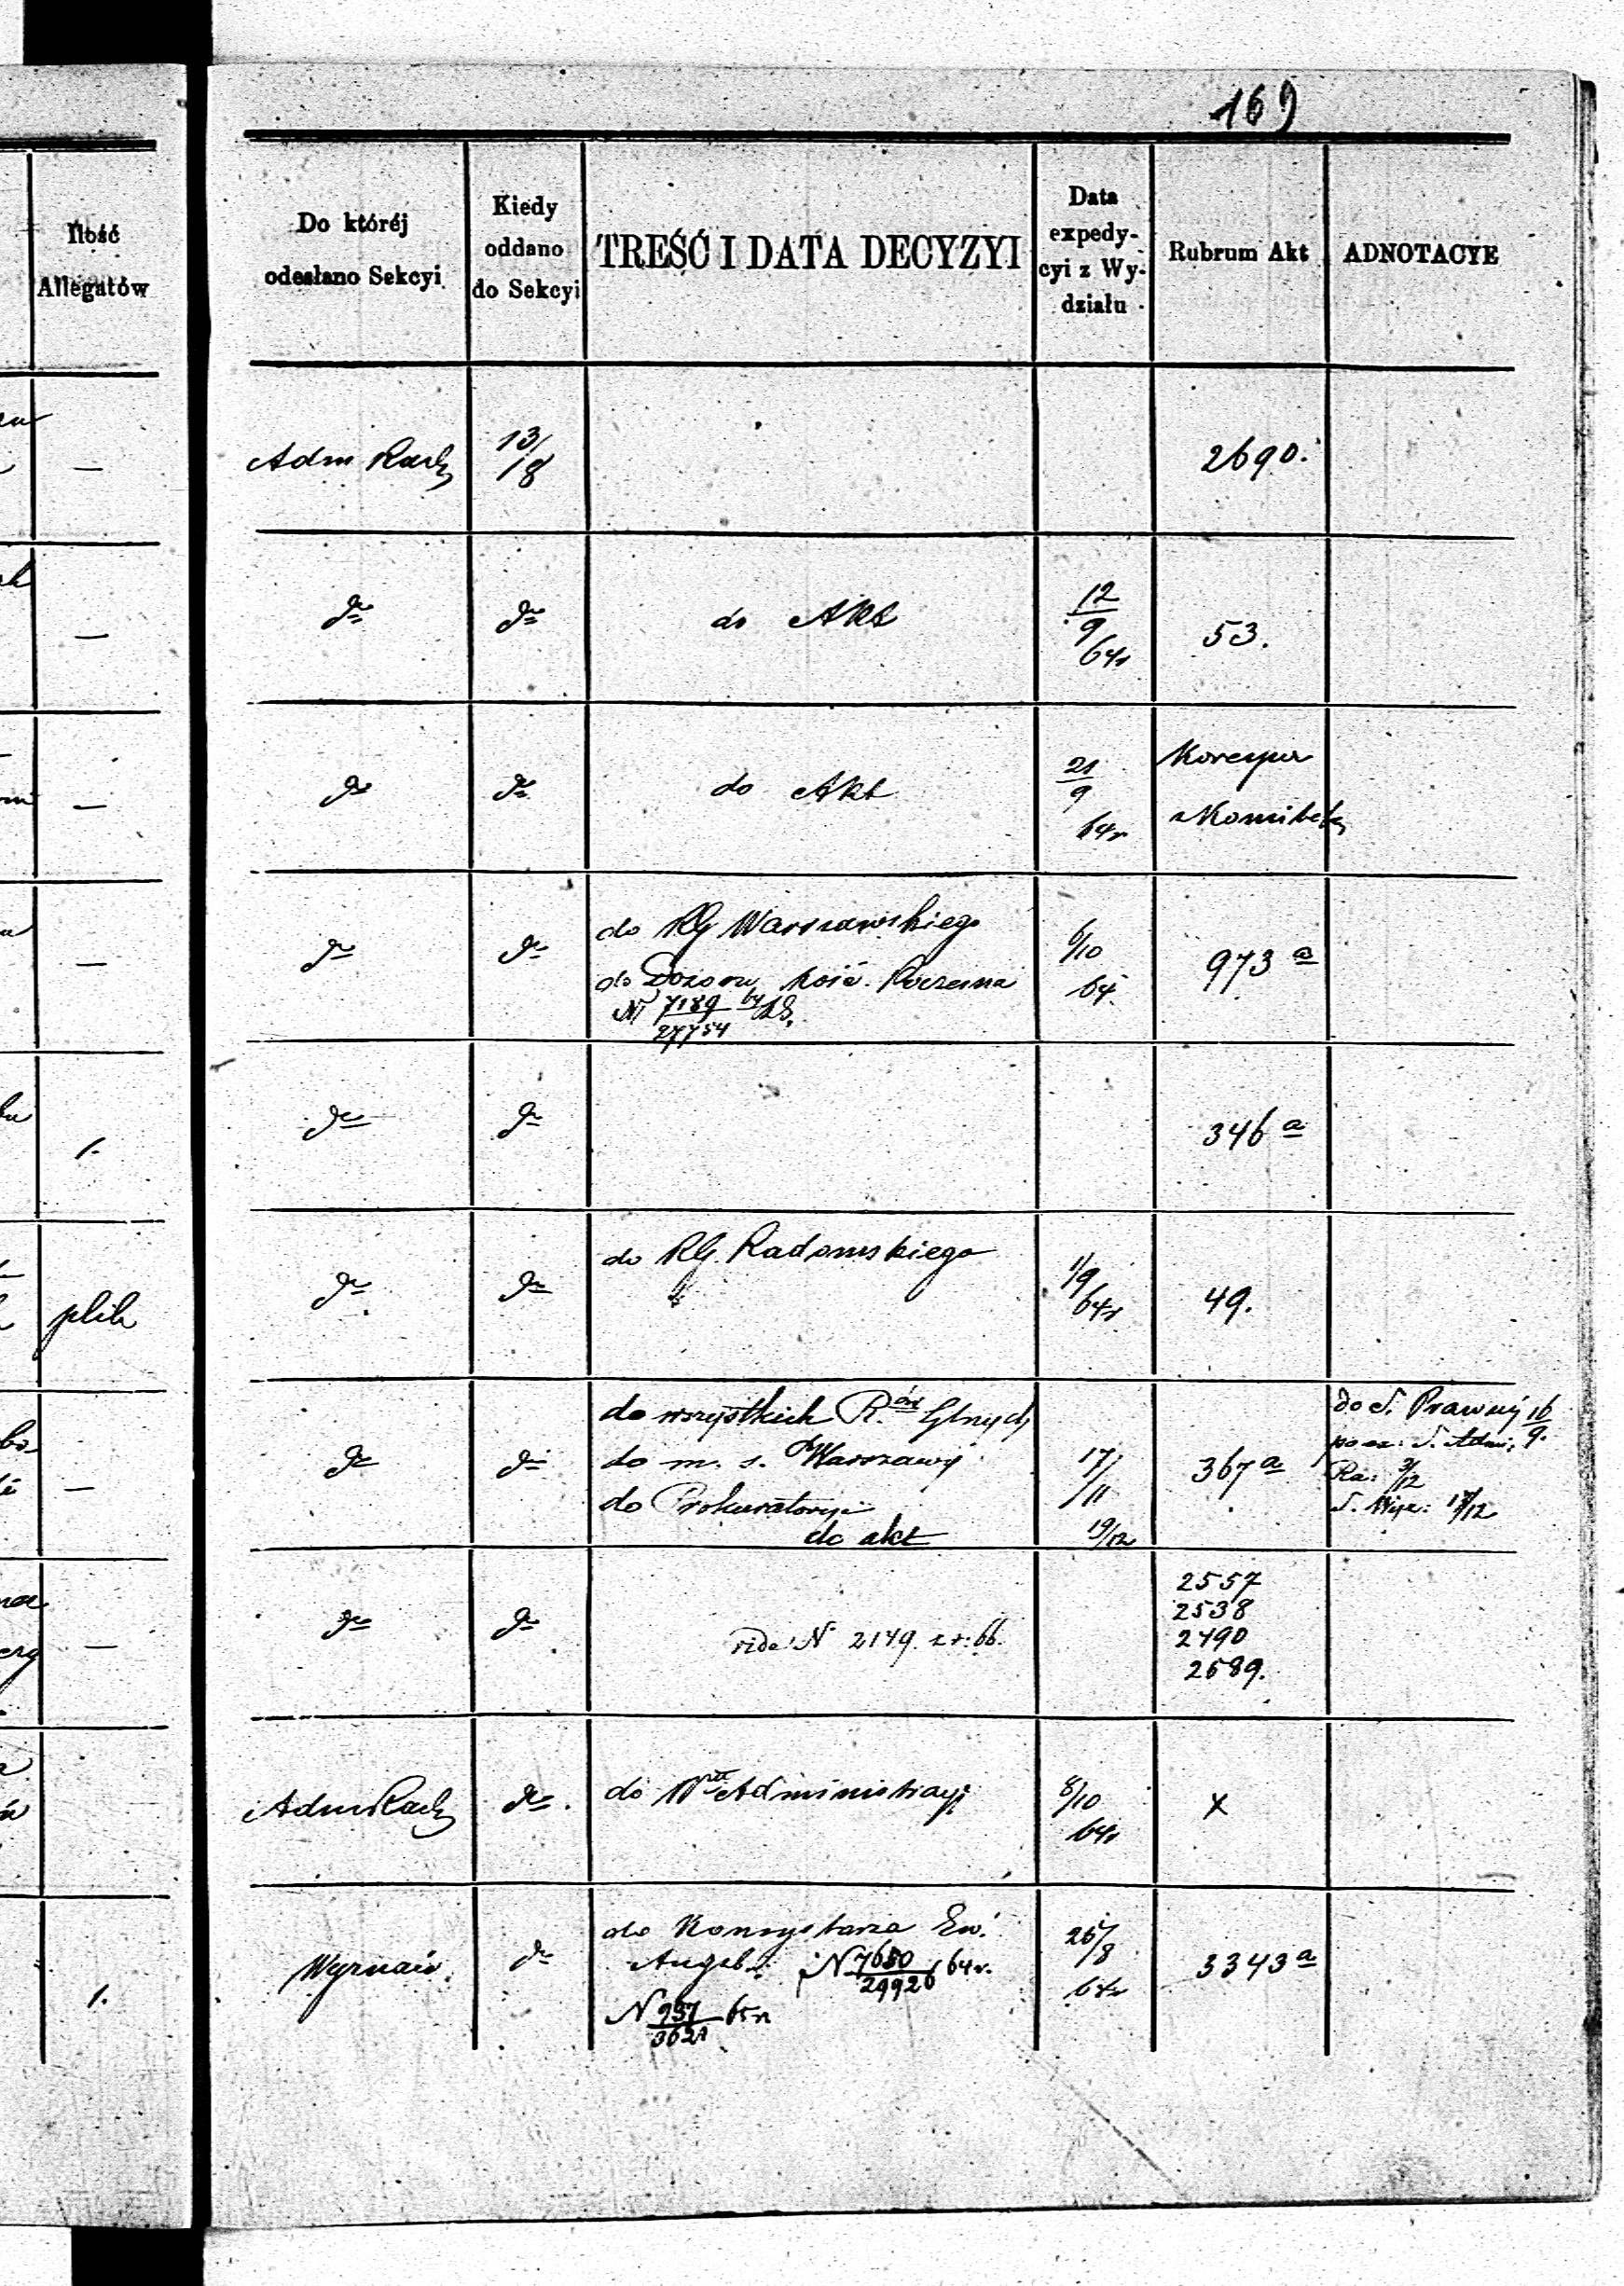 169
Ilość
Allegatów
Do któréj
odesłano Sekcyi
Kiedy
oddano
do Sekcyi
TREŚĆ I DATA DECYZYI
Data
expedy-
cyi z Wy-
działu
Rubrum Akt
ADNOTACYE
—
Adm Rach
13/
/8
2690.
—
do
do
do Akt
12
9
64r
53.
—
do
do
do Akt
21
9
64r
Korespon
Komitetu
—
do
do
do RG Warszawskiego
do Dozoru kość.
N 7189
27754
6/10
64.
973 a
1.
do
do
346 a
plik
do
do
do RG. Radomskiego
1/9
64r
49.
—
do
do
do wszystkich R. ów Gbnych
do m. s. Warszawy
do Prokuratoryi
do akt
17/
/11
19/12
367 a
do S. Prawnéj 16
9.
S. Adm:
Ra: 3/12
S. Wyz: 17/12
—
do
do
vide N 2149. z r: 66.
2557
2538
2490
2689.
Adm Rach
do
do Administracyi
8/10
64r
x
1.
Wyznań
do
do Konsystorza Ew.
Augsb. N 7650 64r.
29926
N 957 65r
3621
26/
/8
64r
3343 a